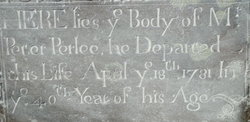 HERE lies yᵉ Body of Mʳ
Peter Perlee, he Departed
this Life April yᵉ 18ᵗʰ 1781 In
yᵉ 40ᵗʰ Year of his Age